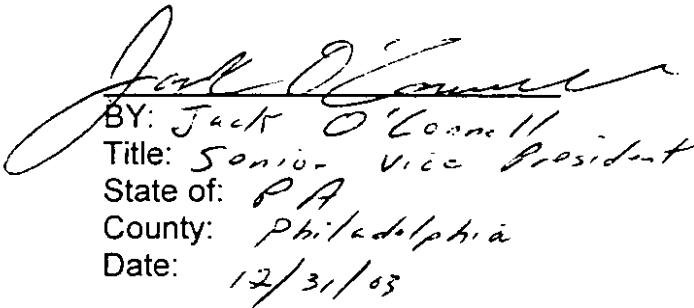 Jack O'Connell
BY: Jack O'Connell
Title: Senior Vice President
State of: PA
County: Philadelphia
Date: 12/31/03